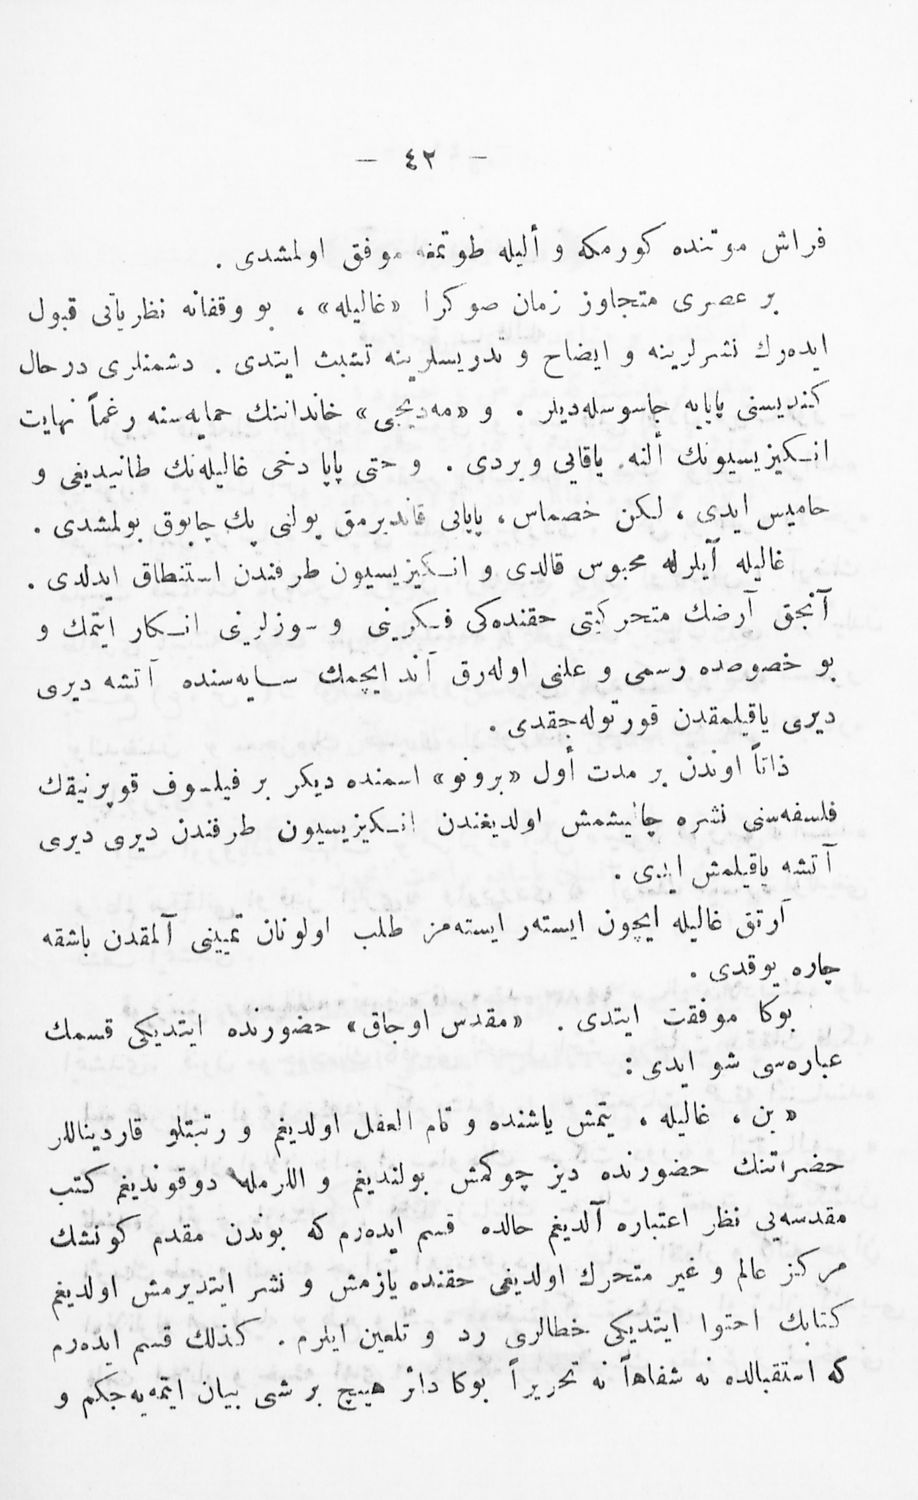 — ٤٢ —
فراش موتنده كورمكه و أليله طوتمغه موفق اولمشدی .
بر عصری متجاوز زمان صوكرا «غاليله» ، بو وقفانه نظرياتی قبول
ايده‌رك نشرلرينه و ايضاح و تدريسلرينه تشبث ايتدی . دشمنلری درحال
كنديسنی پاپايه جاسوسله‌ديلر . و «مه‌ديچی» خانداننك حمايه‌سنه رغماً نهايت
انكيزيسيونك ألنه ياقایی ويردی . و حتی پاپا دخی غاليله‌نك طانيديغی و
حاميس ايدی ، لكن خصماس، پاپایی قانديرمق يولنی پك چابوق بولمشدی .
غاليله آيلرله محبوس قالدی و انكيزيسيون طرفندن استنطاق ايدلدی .
آنجق آرضك متحركيتی حقنده‌كی فكرينی و سوزلرينی انكار ايتمك و
بو خصوصده رسمی و علنی اوله‌رق آند ايچمك سايه‌سنده آتشه ديری
ديری ياقيلمقدن قورتوله‌جقدی .
ذاتاً اوندن بر مدت أول «برونو» اسمنده ديكر بر فيلسوف قوپرنيقك
فلسفه‌سنی نشره چاليشمش اولديغندن انكيزيسيون طرفندن ديری ديری
آتشه ياقيلمش ايدی .
آرتق غاليله ايچون ايسته‌ر ايسته‌مز طلب اولونان تميينی آلمقدن باشقه
چاره يوقدی .
بوكا موفقت ايتدی . «مقدس اوجاق» حضورنده ايتديكی قسمك
عباره‌سی شو ايدی :
« بن ، غاليله ، يتمش ياشنده و تام العقل اولديغم و رتبتلو قارديناللر
حضراتنك حضورنده ديز چوكمش بولنديغم و اللرمله دوقونديغم كتب
مقدسه‌یی نظر اعتباره آلديغم حالده قسم ايده‌رم كه بوندن مقدم كونشك
مركز عالم و غير متحرك اولديغی حقنده يازمش و نشر ايتديرمش اولديغم
كتابك احتوا ايتديكی خطالری رد و تلعين ايلرم . كذلك قسم ايده‌رم
كه استقبالده نه شفاهاً نه تحريراً بوكا دائر هيچ بر شی بيان ايتمه‌يه‌جكم و